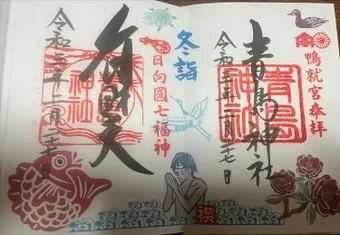 鴨就宮奉拝
青島神社
青島神社
令和三年二月二七日
冬詣
日向國七福神
禊
弁財天
神社
令和三年二月二七日